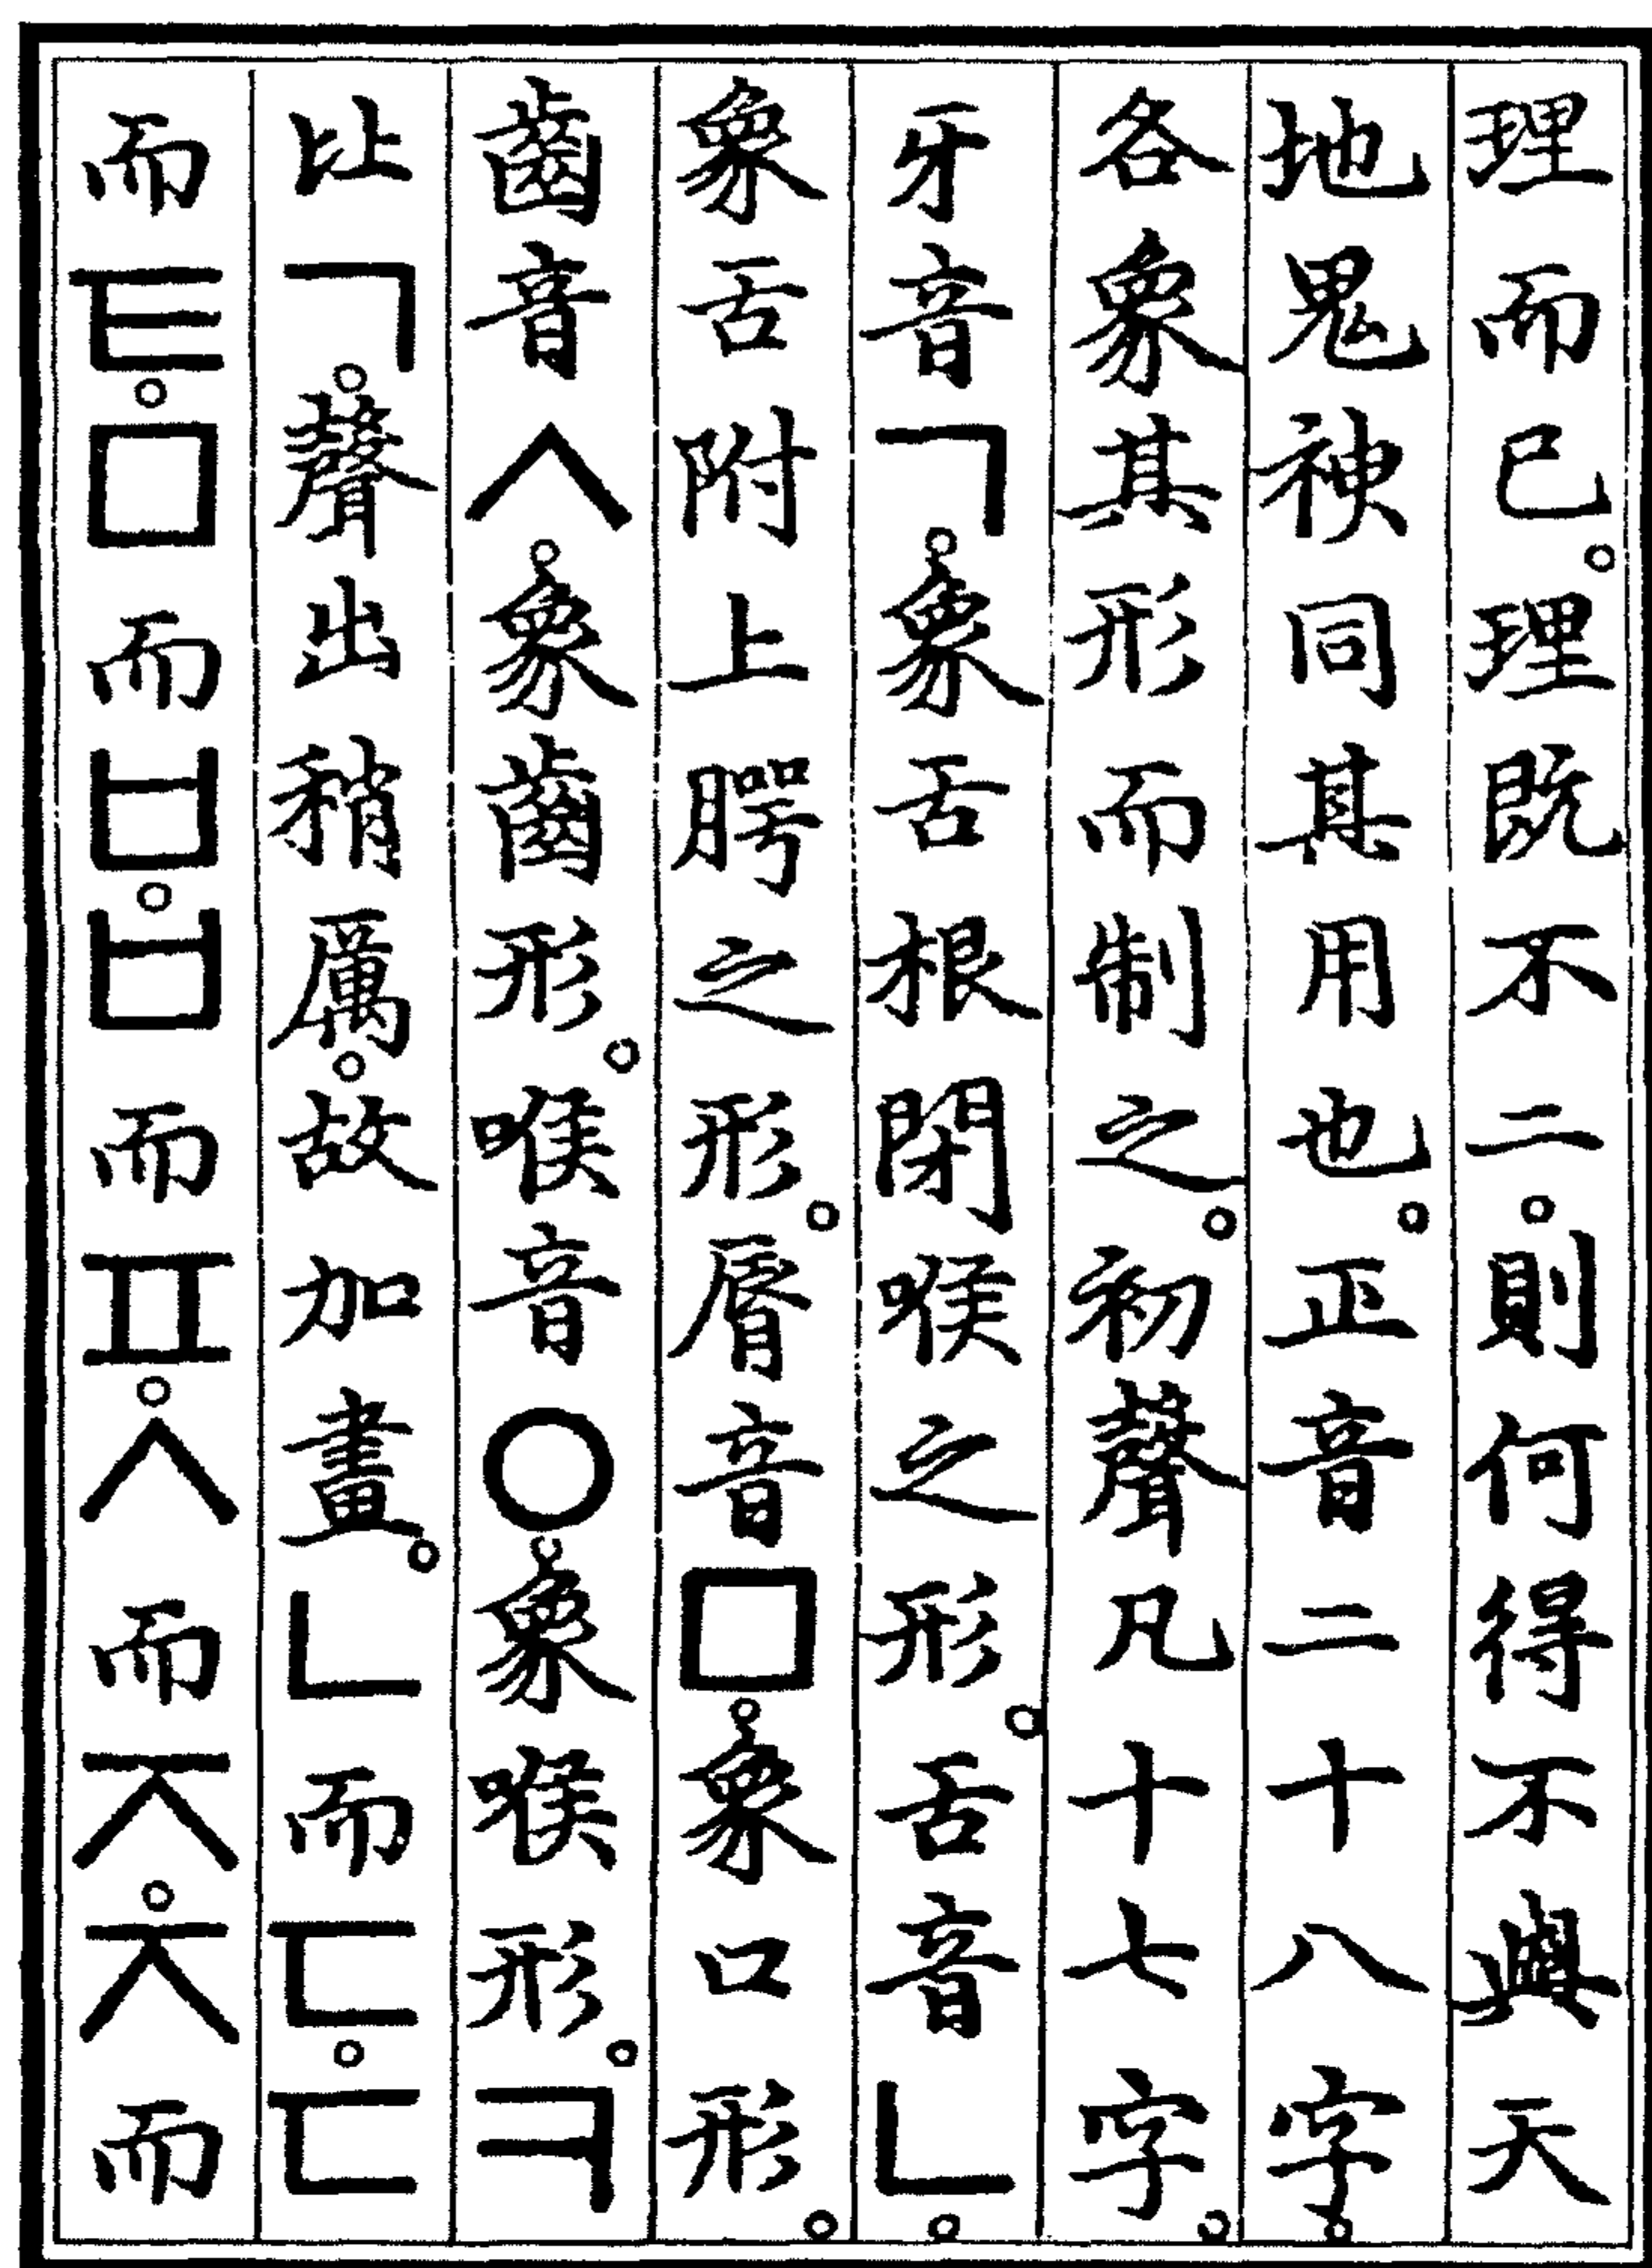 理而已。理既不二。則何得不與天
地鬼神同其用也。正音二十八字。
各象其形而制之。初聲凡十七字。
牙音ㄱ。象舌根閉喉之形。舌音ㄴ。
象舌附上腭之形。脣音ㅁ。象口形。
齒音ㅅ。象齒形。喉音ㅇ。象喉形。ㅋ
比ㄱ。聲出稍厲。故加畫。ㄴ而ㄷ。ㄷ
而ㅌ。ㅁ而ㅂ。ㅂ而ㅍ。ㅅ而ㅈ。ㅈ而